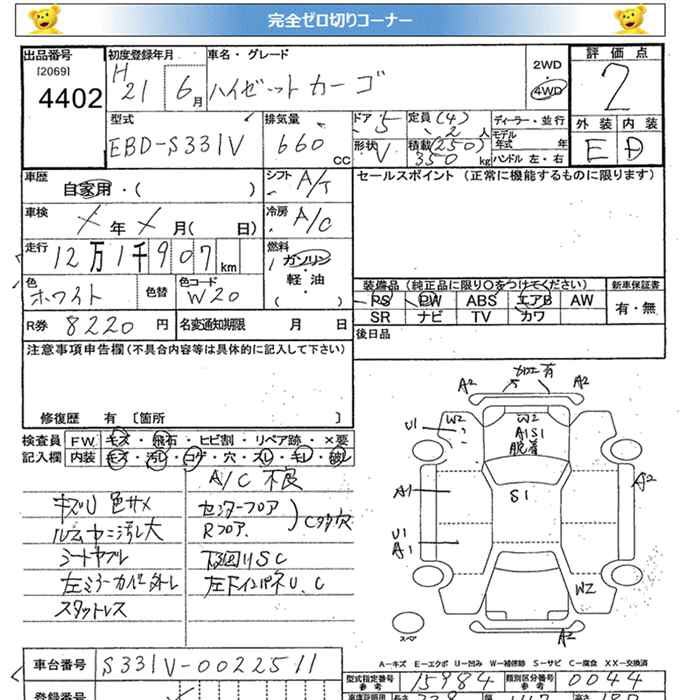 完全ゼロ切りコーナー
出品番号
[2069]
4402
初度登録年月
H 21 6月
車名・グレード
ハイゼットカーゴ
2WD
4WD
評価点
2
外装 内装
E D
型式
EBD-S331V
排気量
660 cc
ドア 5
形状 V
定員 (4) 2 人
積載 (250) 350 kg
ディーラー・並行
モデル年式 年
ハンドル 左・右
車歴
自家用・( )
シフト A/T
セールスポイント (正常に機能するものに限ります)
車検
年 月( 日)
冷房 A/C
走行
12万1千907km
燃料
ガソリン
軽・油
( )
色
ホワイト
色替
色コード
W20
装備品 (純正品に限り○をつけてください)
新車保証書
PS PW ABS エアB AW
SR ナビ TV カワ
有・無
R券 8220円
名変通知期限 月 日
後日品
注意事項申告欄 (不具合内容等は具体的に記入して下さい)
修復歴 有 〔箇所 〕
検査員記入欄
FW キズ・飛石・ヒビ割・リペア跡・×要
内装 キズ・汚レ・コゲ・穴・スレ・キレ・破レ
A/C 不良
キズU 色サメ
ルームヤニ汚レ大
シートヤブレ
左ミラーカバー外レ
スタットレス
センターフロア
Rフロア
C多穴
下廻りSC
左下インパネU.C
加工有
A2
A2
U1
W2
W2
A1S1
脱着
A1
S1
A2
U1
A1
W2
スペア
A2
A-キズ E-エクボ U-凹み W-補修跡 S-サビ C-腐食 XX-交換済
車台番号 S331V-0022511
型式指定番号 参考 15984
類別区分番号 参考 0044
登録番号